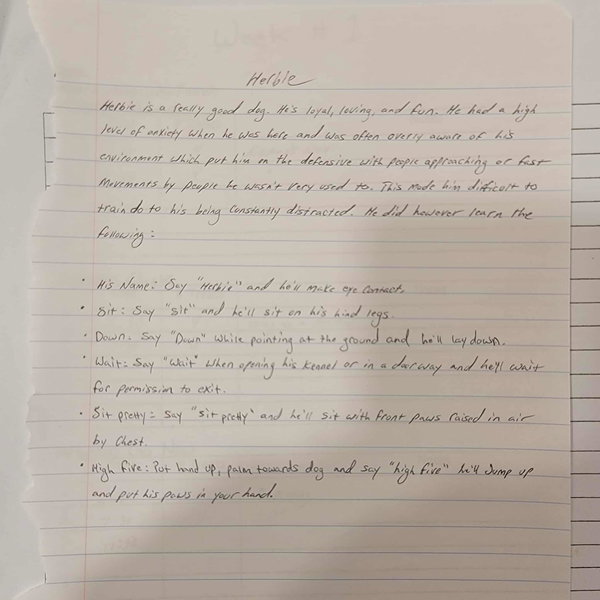 Week # 1
Herbie
Herbie is a really good dog. He's loyal, loving, and fun. He had a high
level of anxiety when he was here and was often overly aware of his
environment which put him on the defensive with people approaching or fast
movements by people he wasn't very used to. This made him difficult to
train do to his being constantly distracted. He did however learn the
following:
• His Name: Say "Herbie" and he'll make eye contact.
• Sit: Say "sit" and he'll sit on his hind legs.
• Down: Say "Down" while pointing at the ground and he'll lay down.
• Wait: Say "Wait" when opening his kennel or in a doorway and he'll wait
for permission to exit.
• Sit pretty: Say "sit pretty" and he'll sit with front paws raised in air
by chest.
• High five: Put hand up, palm towards dog and say "high five" he'll jump up
and put his paws in your hand.